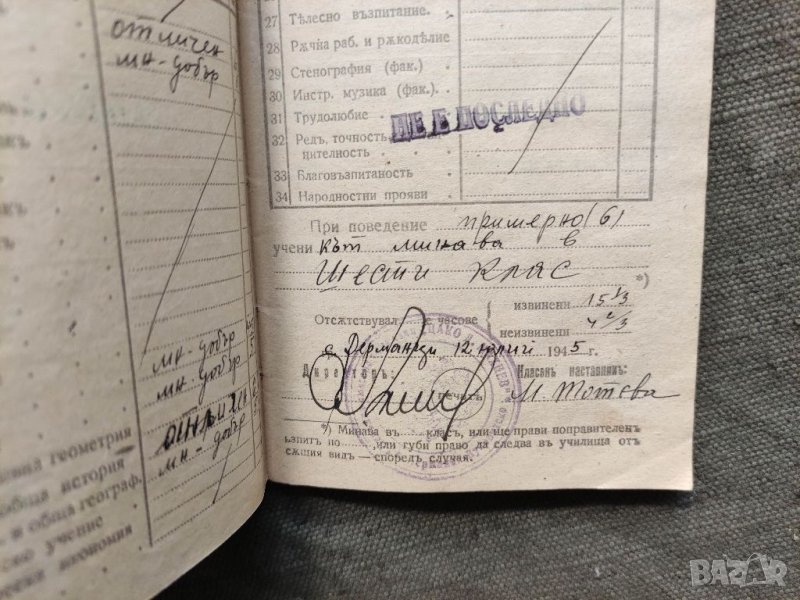 отличен
мн. добър
мн. добър
мн. добър
отличен
мн. добър
геометрия
обща история
и обща географ.
учение
27 Тѣлесно възпитание.
28 Рѫчна раб. и рѫкодѣлие
29 Стенография (фак.)
30 Инстр. музика (фак.).
31 Трудолюбие
32 Редъ, точность
ИЕ Е ПОСЛЕДНО
нителность
33 Благовъзпитаность
34 Народностни прояви
При поведение примерно (6)
ученикът минава в
Шести клас *)
Отсѫтствувал часове { извинени 15 1/3
неизвинени 4 2/3
с. Дерманци 12 юлий 1945 г.
Директоръ: Класенъ наставникъ:
печатъ М. Тотева
*) Минава въ ... класъ, или ще прави поправителенъ
изпитъ по ... или губи право да следва въ училища отъ
сѫщия видъ — споредъ случая.
BAZAR